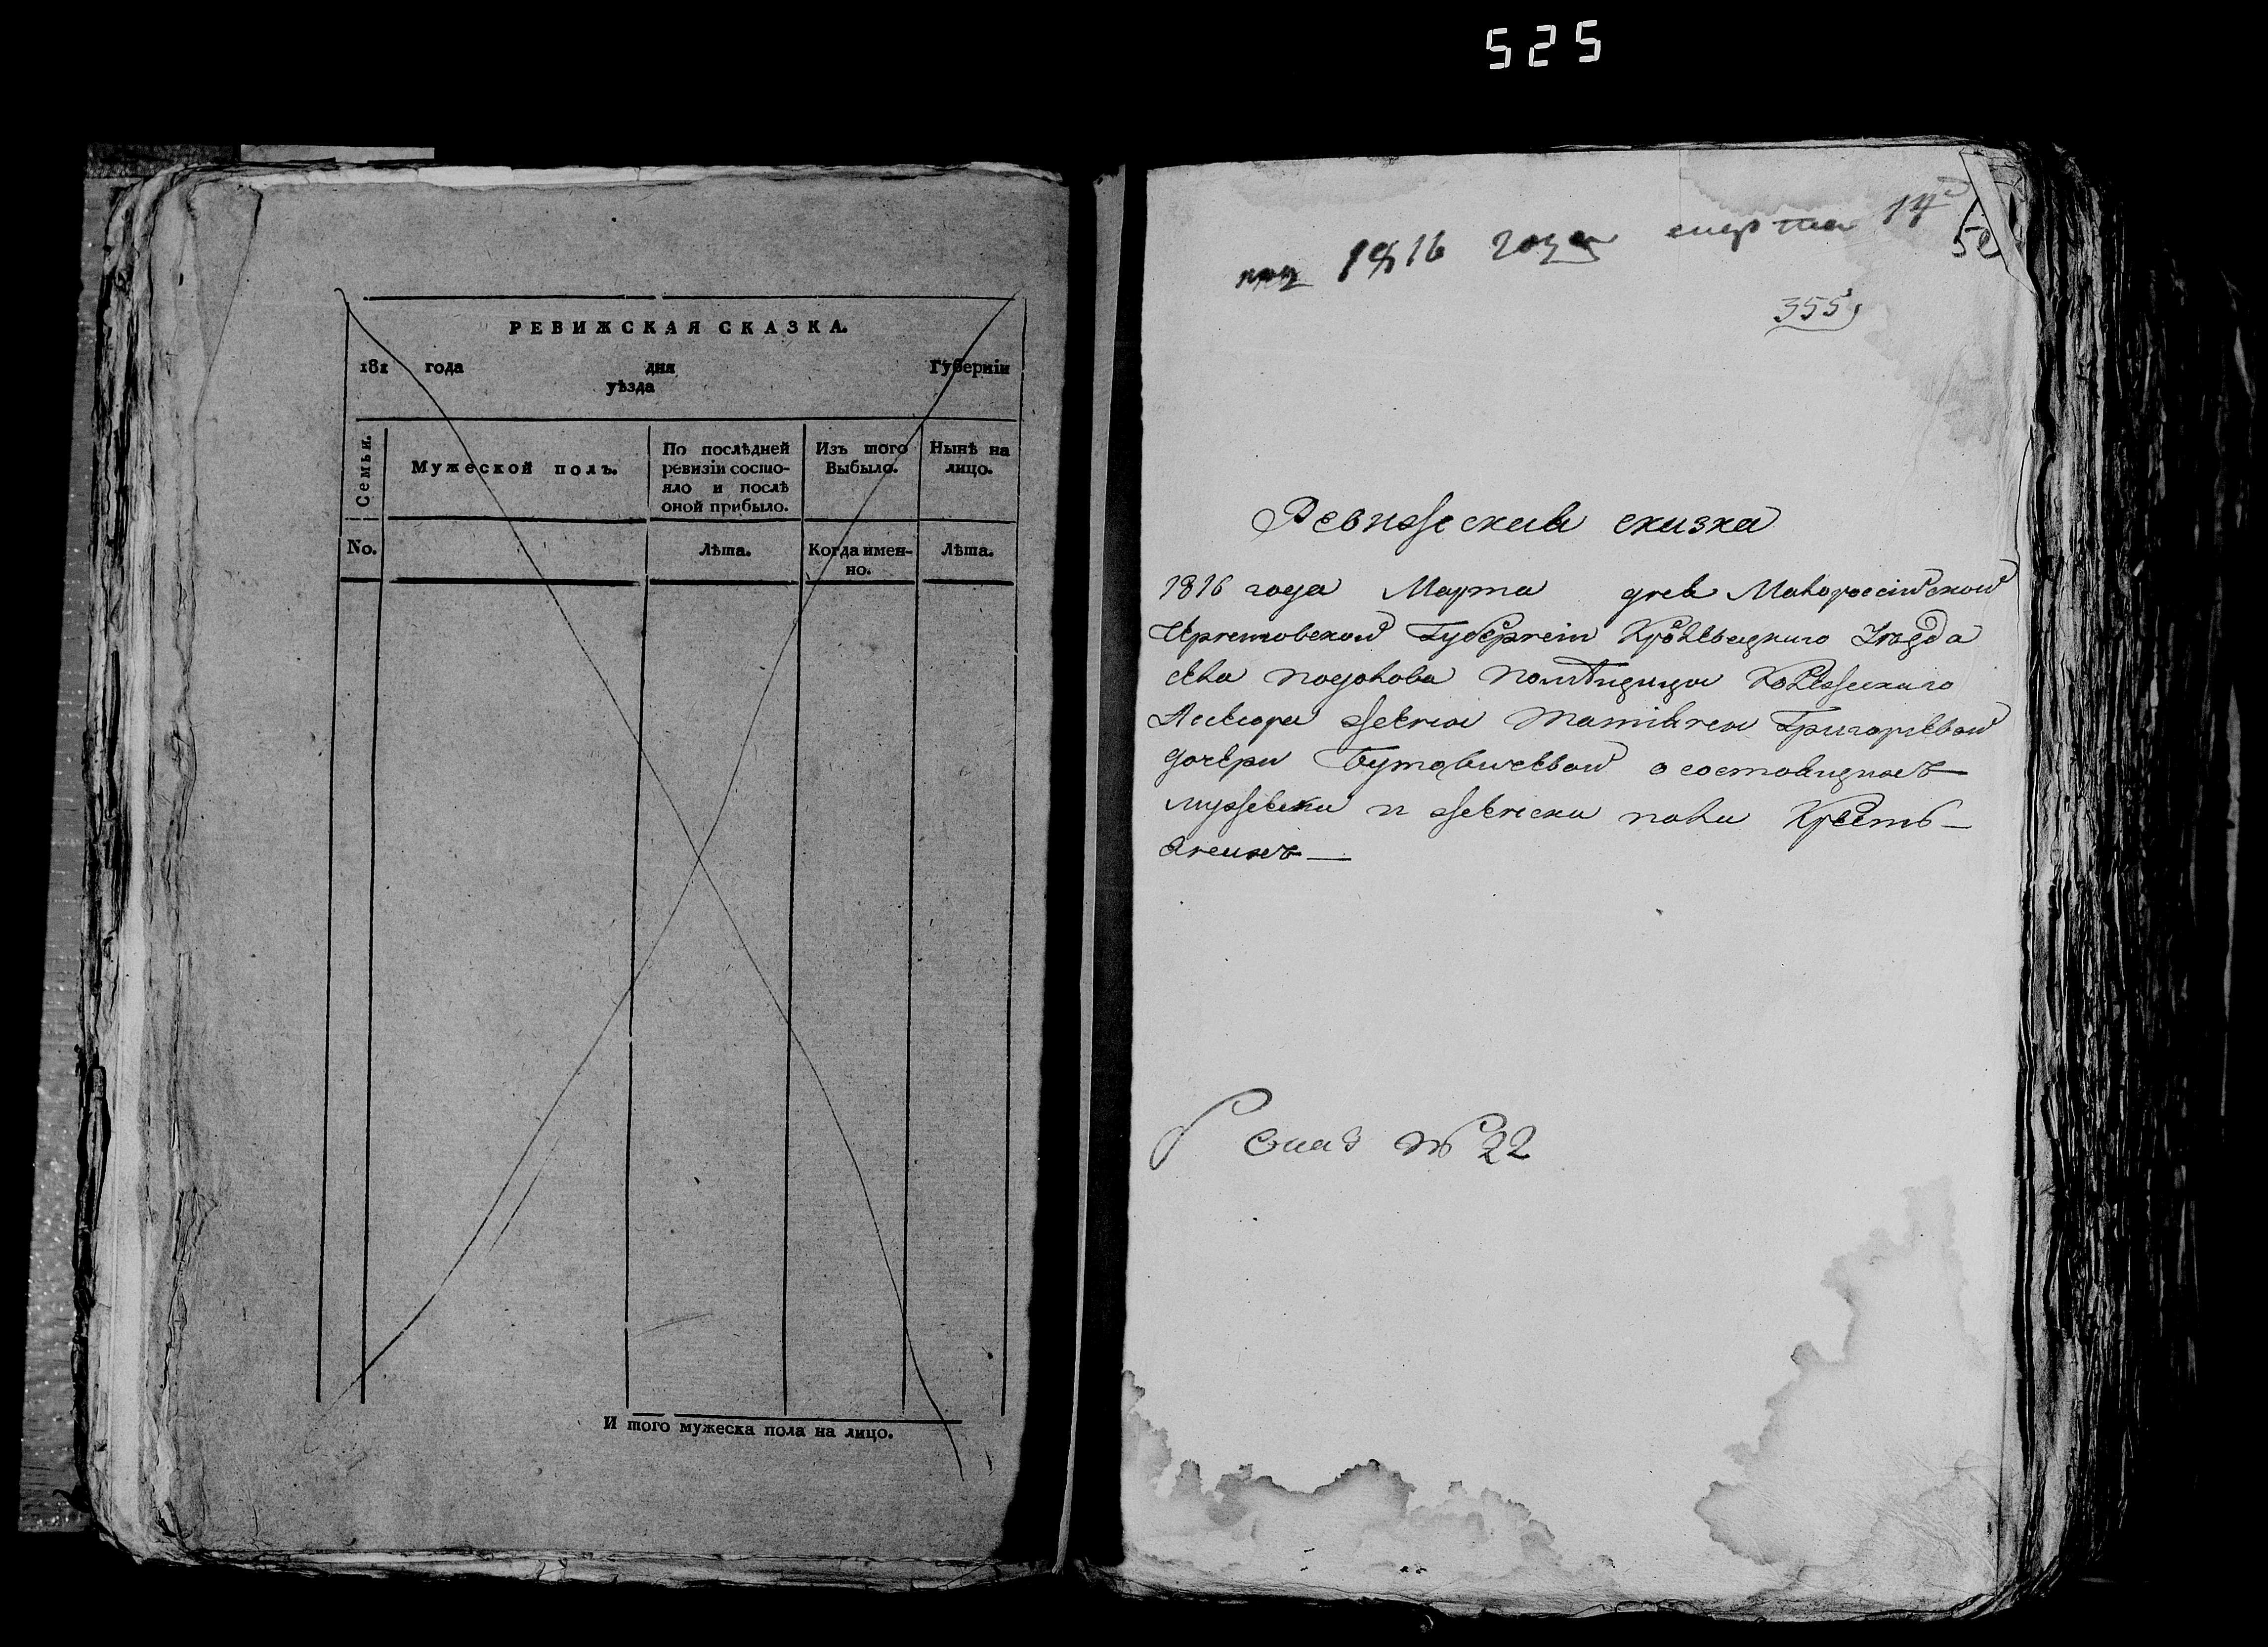 525
РЕВИЖСКАЯ СКАЗКА.
181 года дня Губерніи
уѣзда
Семьи.
Мужеской полъ.
По послѣдней
ревизіи состо-
яло и послѣ
оной прибыло.
Изъ того
Выбыло.
Нынѣ на
лицо.
No.
Лѣта.
Когда имен-
но.
Лѣта.
И того мужеска пола на лицо.
1816 года марта 14
355
Ревижская сказка
1816 года Марта дня Малороссійской
Черниговской Губерніи Кролевецкаго Уѣзда
села Подолова помѣщицы Колежскаго
Асесора жены Татіяны Григорьевой
дочери Бутовичевой о состоящихъ
мужеска и женска пола Кресть-
янехъ
№ 22